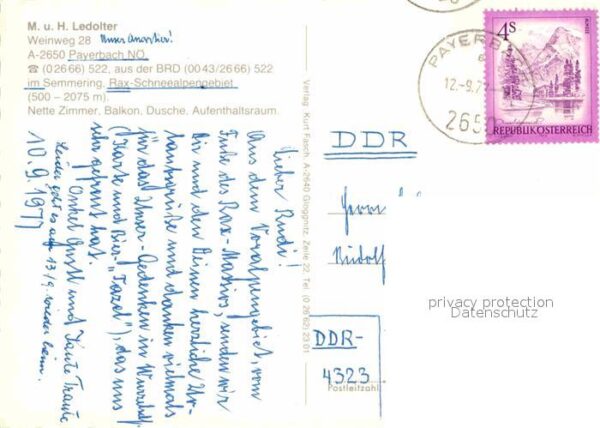 M. u. H. Ledolter
Weinweg 28 Unser Quartier!
A-2650 Payerbach NÖ.
☎ (02666) 522, aus der BRD (0043/2666) 522
im Semmering, Rax-Schneealpengebiet
(500 – 2075 m).
Nette Zimmer, Balkon, Dusche, Aufenthaltsraum.
Lieber Rudi!
Aus dem Voralpengebiet, vom
Fuße des Rax-Massivs, senden wir
Dir und den Deinen herzliche Ur-
laubsgrüße und danken vielmals
für das Unser-Gedenken in Wurzb
(Karte und Bier-"Tazel"), das uns
sehr gefreut hat.
Onkel Gustl und Tante Traute
10.9.1977
Leider geht es am 13./9. wieder heim.
Verlag: Kurt Fasch, A-2640 Gloggnitz, Zeile 22, Tel. (0 26 62) 23 01
DDR
Herrn
Rudolf
DDR-
4323
Postleitzahl
PAYERBA
12.-9.7
265
4S
REPUBLIK ÖSTERREICH
privacy protection
Datenschutz